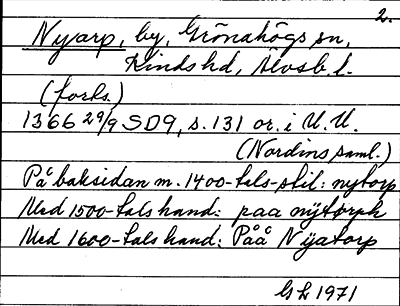 2.
Nyarp, by, Grönahögs sn,
Kinds hd, Älvsb. l.
(forts.)
1366 29/9 SD9, s. 131 or. i U.U.
(Nordins saml.)
På baksidan m. 1400-tals-stil: nytorp
Med 1500-tals hand: paa nÿtørph
Med 1600-tals hand: Påå Nÿatorp
GL 1971